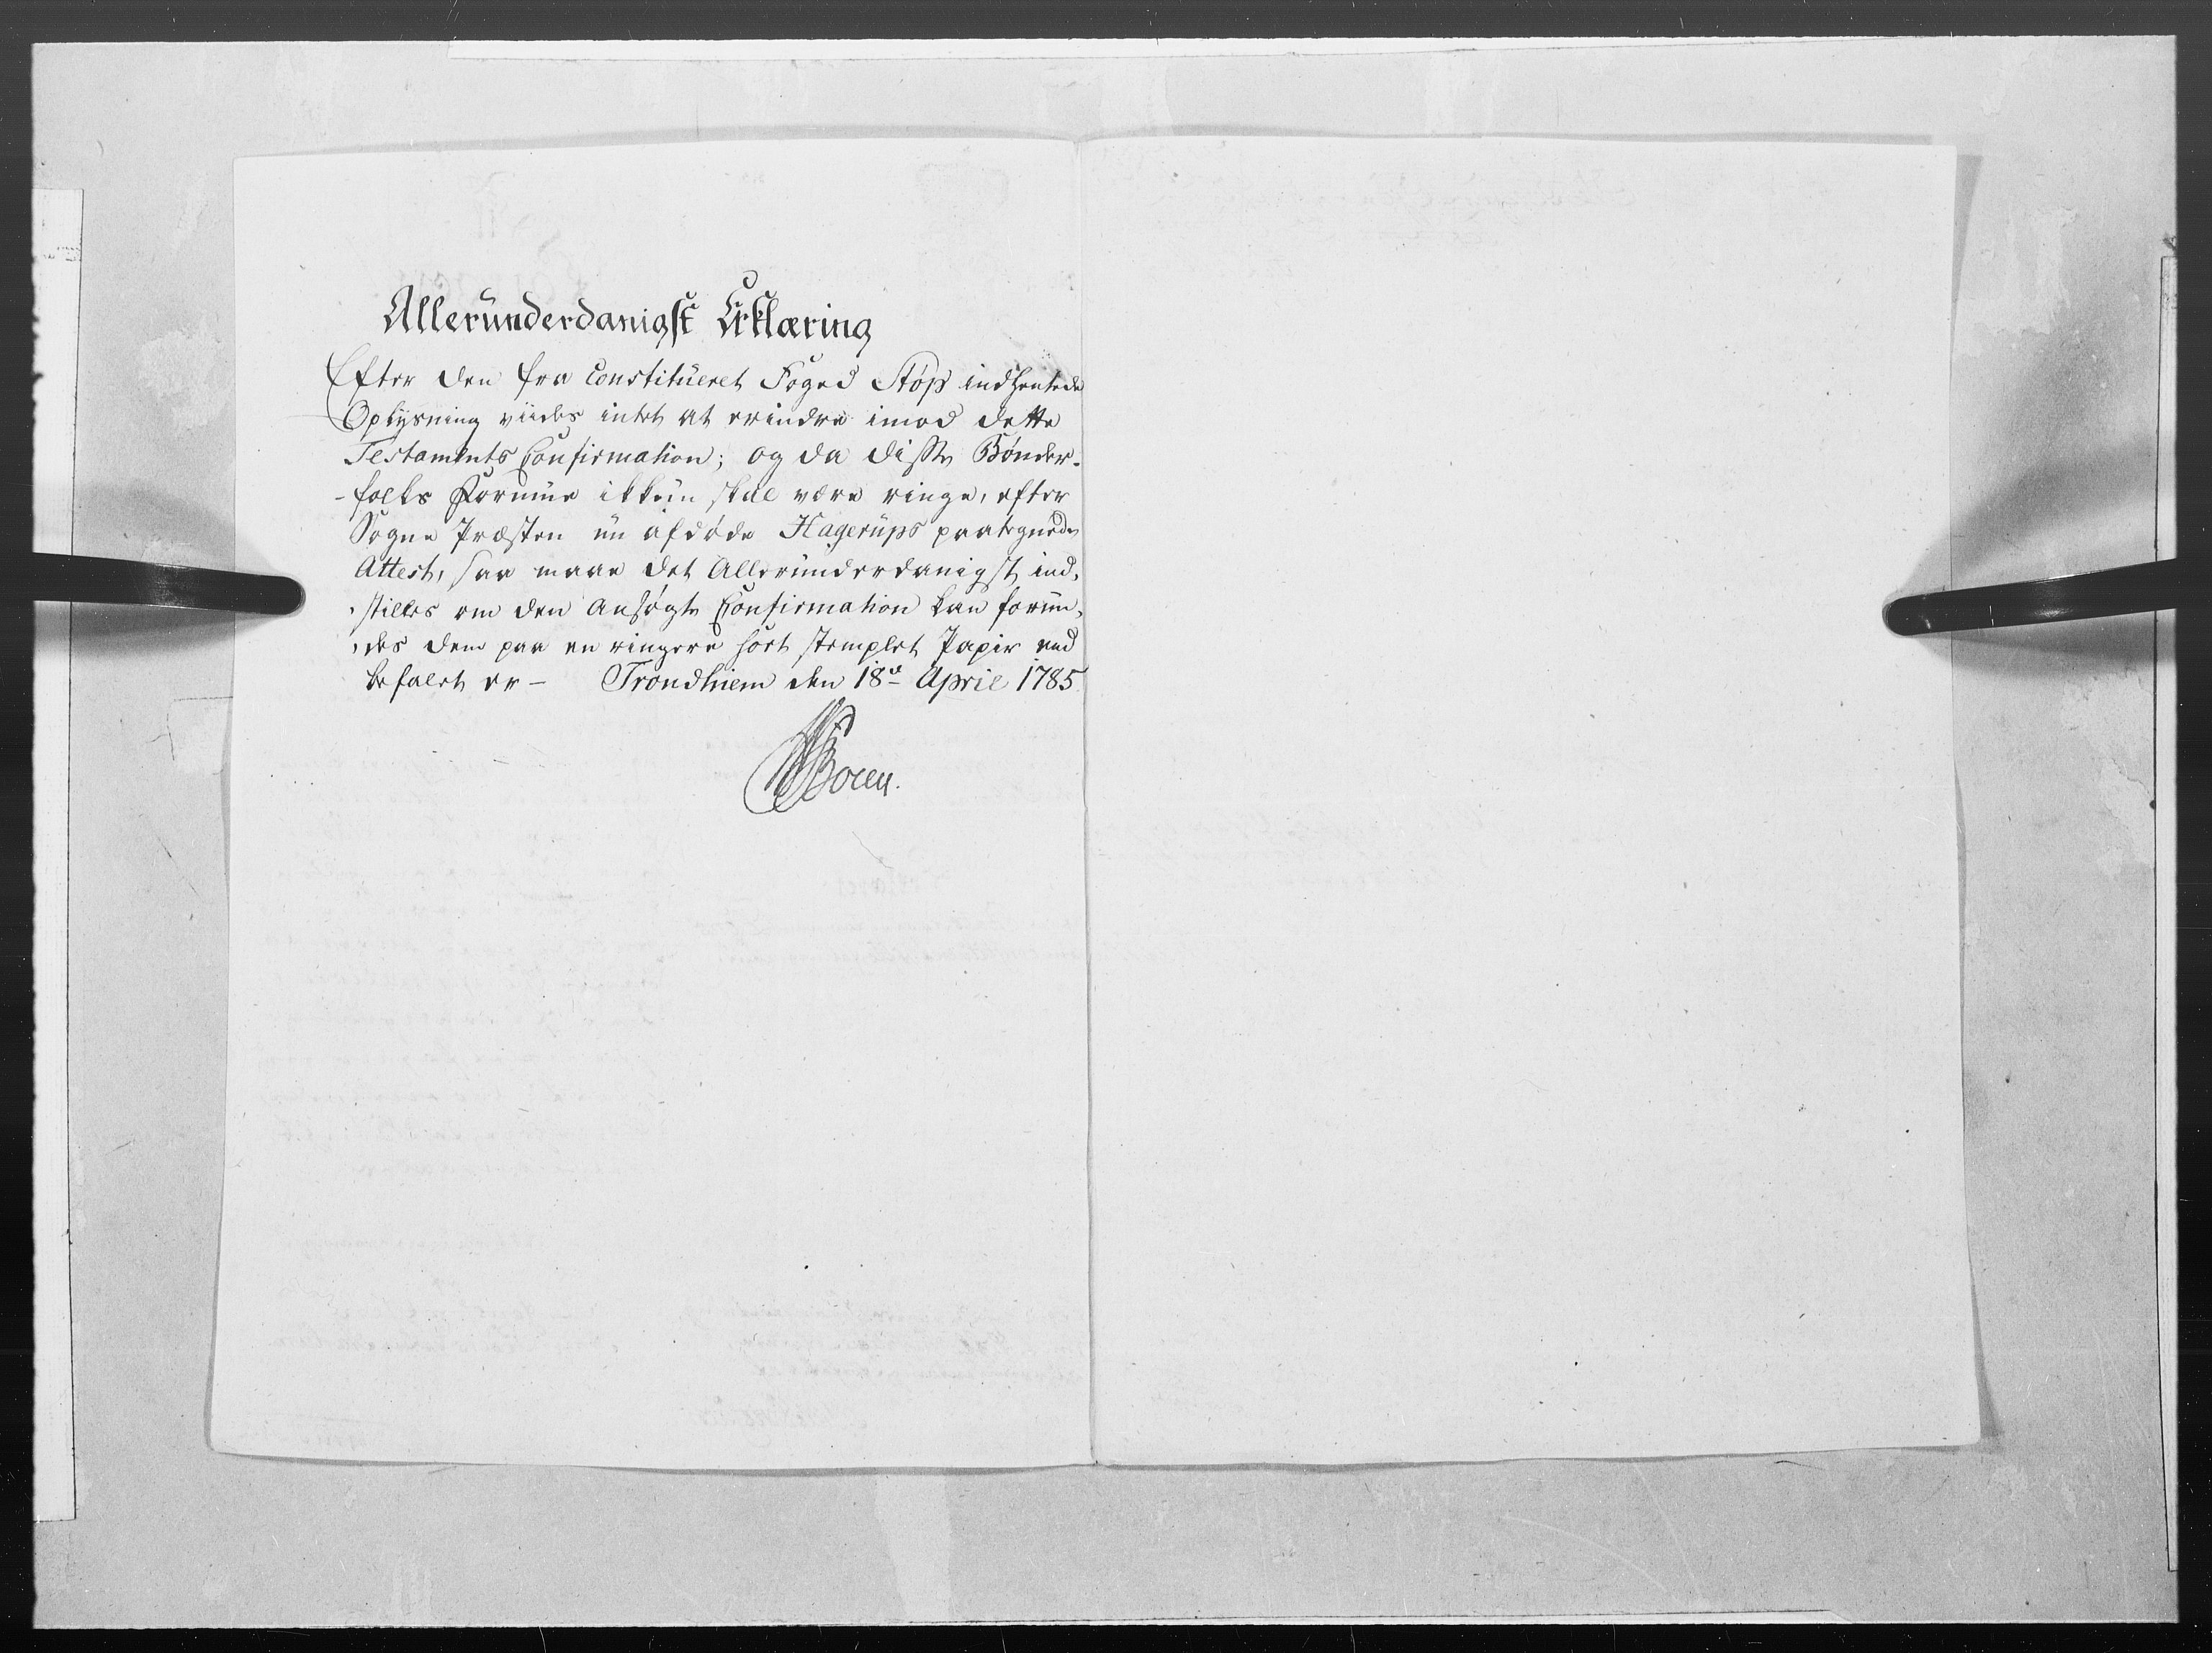 Allerunderdanigst Erklæring
Efter den fra Constitueret Foged Støp indhentede
Oplysning viides intet at erindre imod dette
Testaments Confirmation; og da disse Bønder-
-folks Formue ikkun skal være ringe, efter
Sogne Præsten nu afdøde Hagerups paategnede
Attest, saa maae det Allerunderdanigst ind-
-stilles om den ansøgte Confirmation kan forun-
-des dem paa en ringere sort stemplet Papir end
befalet er - Trondhiem den 18de April 1785